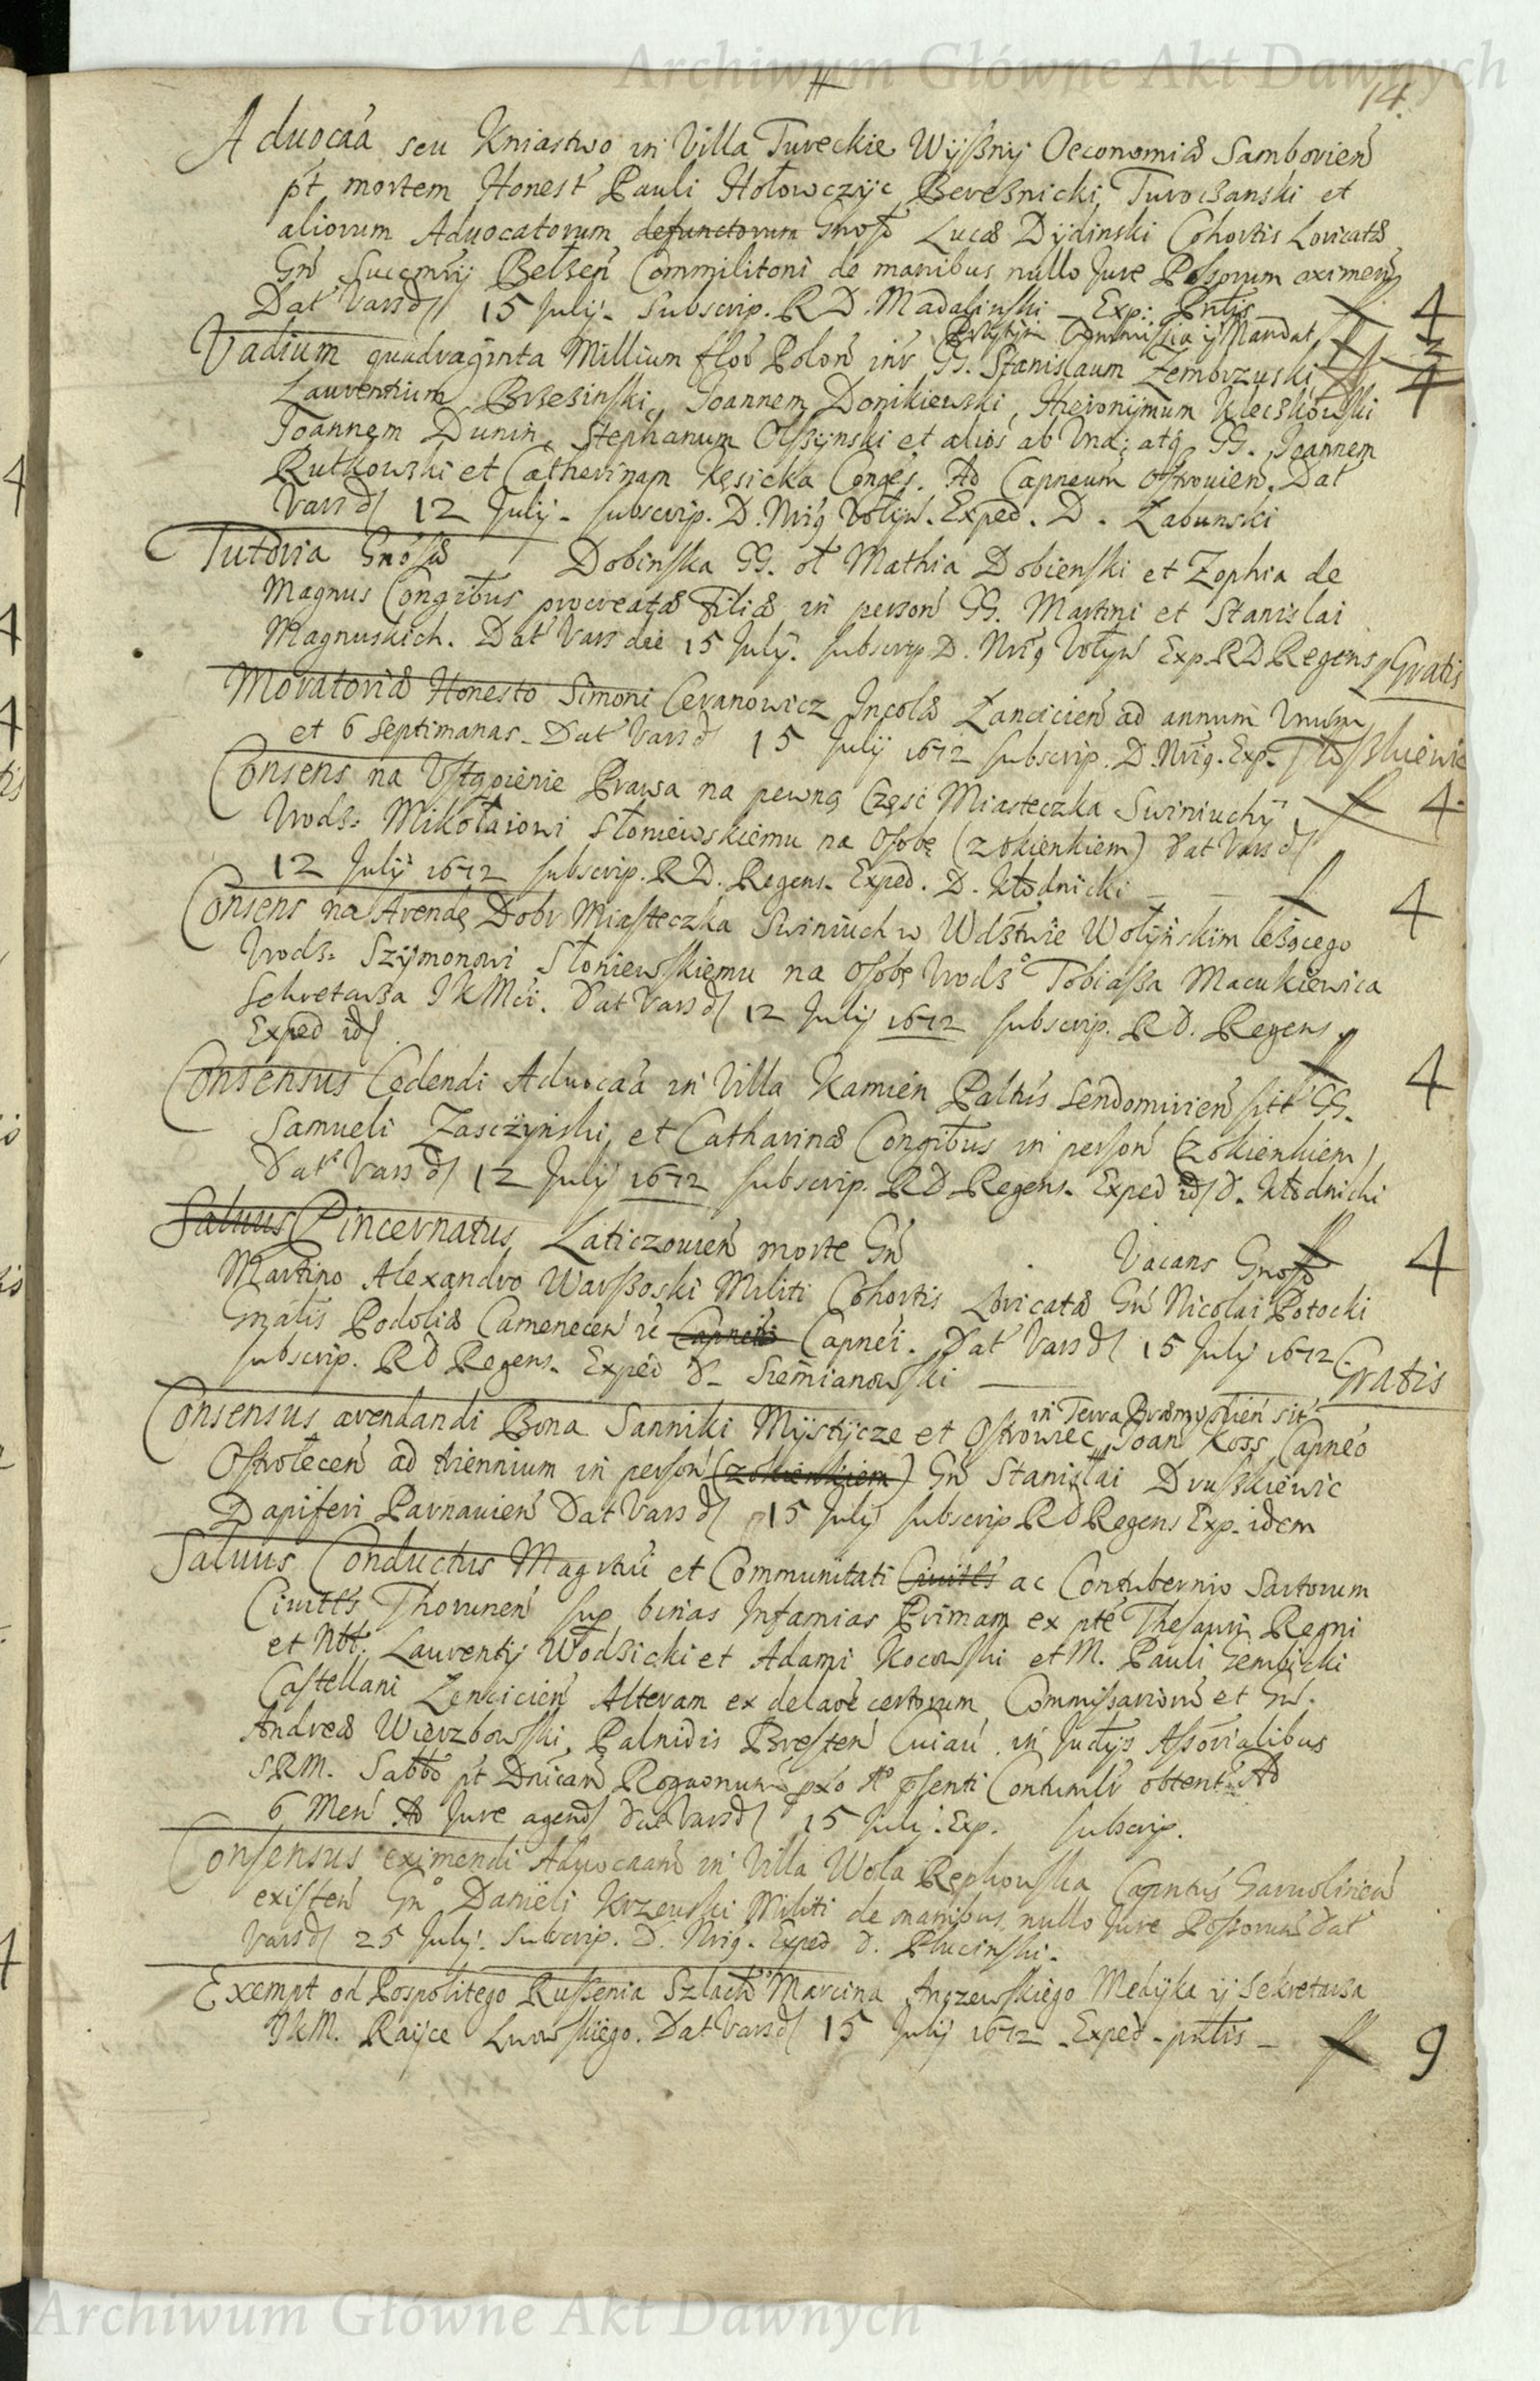 Archiwum Główne Akt Dawnych
14
Aduocãa seu Kniastwo in Villa Tureckie Wyßnij Oeconomiæ Samborien
pt mortem Honest Pauli Hołowczyc Bereßnicki, Turoczanski et
aliorum Aduocatorum defunctorum Gnoso Lucæ Dydinski Cohortis Loricatæ
Gn Succmrij Belzen Commilitoni de manibus nullo Jure Possorum eximen
Dat Vars d 15 July. Subscrip. RD. Madalinski Exp: Pntis 4
Commissia ij Mandat 3
Vadium quadraginta Millium flor Polon intr GG. Stanislaum Zembrzuski 4
Laurentium Brzezinski, Joannem Donikiewski, Hieronijmum Kleczkowski
Joannem Dunin, Stephanum Olszynski et alios ab Una; atq GG. Joannem
Rutkowski et Catherinam Kęsicka Conges. Ad Capneum Ostrouien. Dat
Vars d 12 July. subscrip. D. Nrig Volyn. Exped. D. Łabunski
Tutoria Gnosæ Dobinska GG. ol Mathia Dobienski et Zophia de
Magnus Congibus procreatæ Filiæ in person GG. Martini et Stanislai
Magnuskich. Dat Vars die 15 July. subscrip D. Nrig Volyn Exp. RD Regens Gratis
Moratoriæ Honesto Simoni Ceranowicz Incolæ Lancicien ad annum Unum
et 6 septimanas. Dat Vars d 15 July 1672 subscrip. D. Nrig. Exp.
Consens na Ustąpienie Prawa na pewną Część Miasteczka Swiniuchy 4
Urodz: Mikołaiowi Słoniewskiemu na Osobę (zokienkiem) Dat Vars d
12 July 1672 subscrip. RD. Regens. Exped. D. Kłodnicki
Consens na Arendę Dobr Miasteczka Swiniuch w Wdztwie Wołyńskim leżącego 4
Urodz. Szymonowi Słoniewskiemu na Osobę Urodz Tobiasza Macukiewica
Sekretarza JKMći. Dat Vars d 12 July 1672 subscrip. RD. Regens
Exped id
Consensus Cedendi Aduocãa in Villa Kamien Paltus Sendomirien sitt GG. 4
Samueli Zasczynski, et Catharinæ Congibus in person (zokienkiem)
Dat Vars d 12 July 1672 subscrip. RD Regens. Exped D. Kłodnicki
Saluus Pincernatus Laticzouien morte Gn Vacans Gnoso 4
Martino Alexandro Warszoski Militi Cohortis Loricatæ Gn Nicolai Potocki
Gnalis Podoliæ Camenecen Capnei. Dat Vars d 15 July 1672
subscrip. RD Regens. Exped D. Siemianowski Gratis
in Terra Præmyslien sit
Consensus arendandi Bona Sanniki Myslycze et Ostrowiec Joan Koss Capneo
Ostrołecen ad triennium in person (zokienkiem) Gn Stanislai Druszkiewic
Dapiferi Parnauien Dat Vars d 15 July subscrip RD Regens Exp. idem
Saluus Conductus Magrtui et Communitati Ciuitts ac Contubernio Sartorum
Ciuitts Thorunen sup binas Infamias Primam ex pte Thesauri Regni
et Nbl: Laurenty Wodzicki et Adami Kocowski et M. Pauli Gembicki
Castellani Lencicien Alteram ex delaõe certorum Commissariorũ et Gn.
Andreæ Wierzbowski, Palnidis Bresten Cuiau in Judijs Assorialibus
SRM. Sabbo pt Dnicam Rogaonum pxo Ao psenti Contumlr obtent. Ad
6 Men Ad Jure agend Dat Vars d 15 July. Exp. subscrip.
Consensus eximendi Aduocaam in Villa Wola Rephowska Capntus Garuolinien
existen Gno Danieli Krzewski Militi de manibus nullo Jure Possorum Dat
Vars d 25 July. Subscrip. D. Nrig. Exped D. Plucinski.
Exempt od Pospolitego Ruszenia Szlach Marcina Anczewskiego Medyka ij Sekretarza
JKM. Rayce Lwowskiego. Dat Vars d 15 July 1672 Exped. pntis 9
Archiwum Główne Akt Dawnych